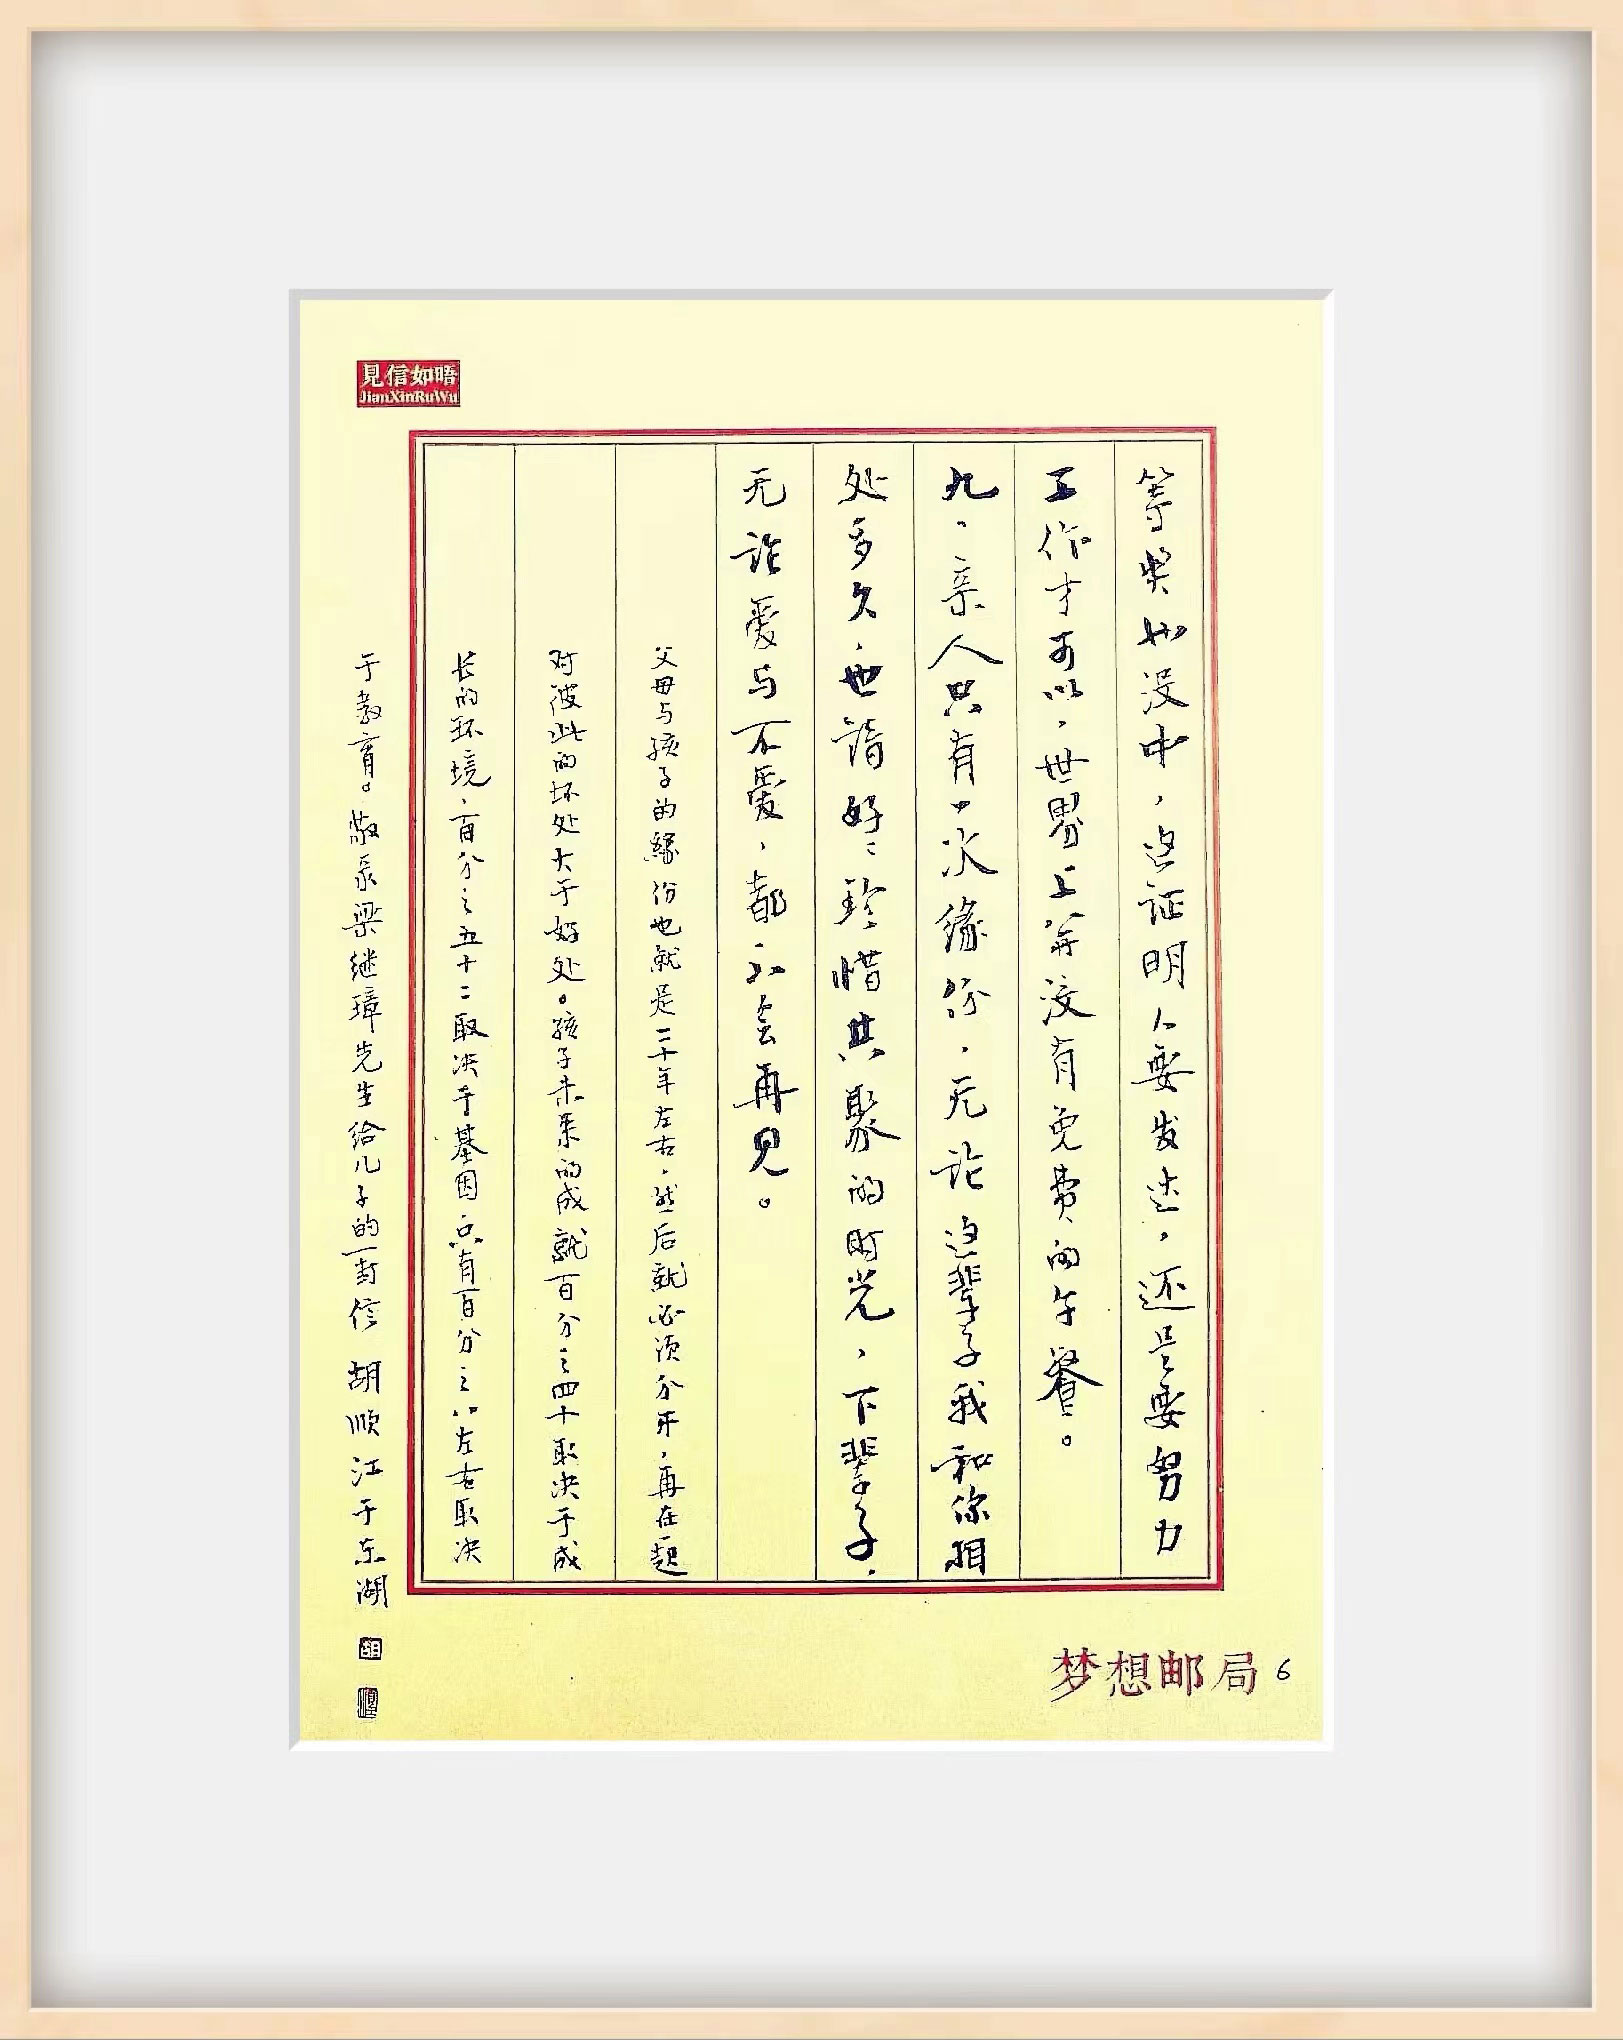 見信如晤
JianXinRuWu
等奖也没中，这证明人要发达，还是要努力
工作才可以，世界上并没有免费的午餐。
九、亲人只有一次缘份，无论这辈子我和你相
处多久，也请好好珍惜共聚的时光，下辈子，
无论爱与不爱，都不会再见。
父母与孩子的缘份也就是二十年左右，然后就必须分开，再在一起
对彼此的坏处大于好处。孩子未来的成就百分之四十取决于成
长的环境，百分之五十二取决于基因，只有百分之八左右取决
于教育。敬录梁继璋先生给儿子的一封信 胡顺江于东湖
胡
梦想邮局 6